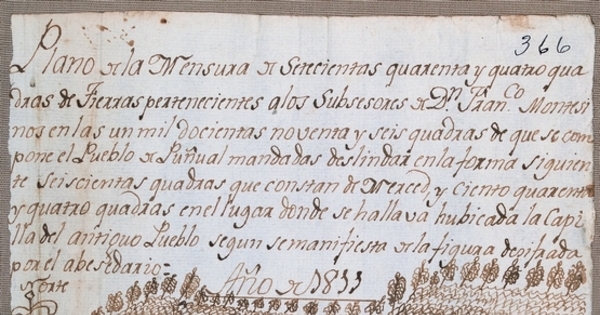 366
Plano de la Mensura de Setecientas quarenta y quatro qua
dras de Tierras pertenecientes a los Subsesores de Dn. Fran.co Montesi
nos en las un mil docientas noventa y seis quadras de que se com
pone el Pueblo de Puñual mandadas deslindar en la forma siguien
te seiscientas quadras que constan de Merced, y Ciento quarenta
y quatro quadras en el lugar donde se hallava hubicada la Capi
lla del antiguo Pueblo segun se manifiesta de la figura
por el abesedario=
Año de 1811
Norte